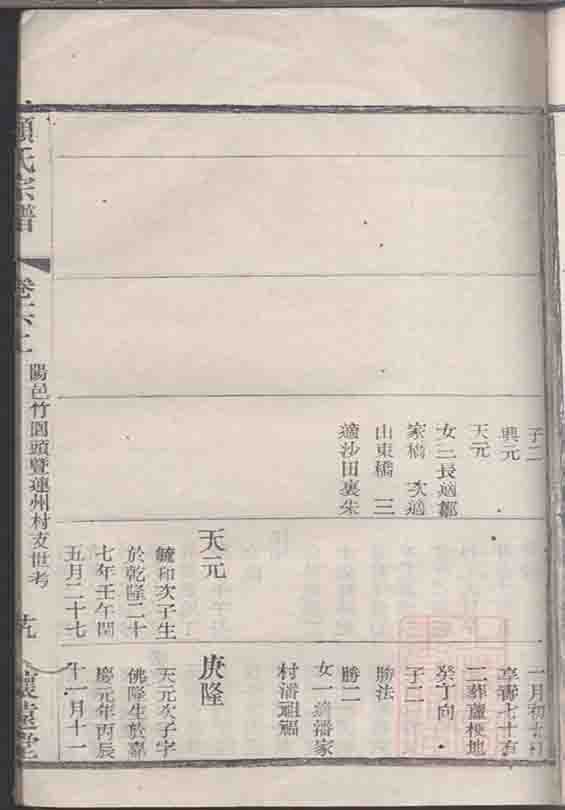 子二
興元
天元
女三長適鄒
家橋 次適
山東橋 三
適沙田裏朱
天元
毓和次子生
於乾隆二十
七年壬午閏
五月二十七
享壽七十有
二葬蘆梗地
癸丁向
子二
勝法
勝二
女一適潘家
村潘祖福
庚隆
天元次子字
佛隆生於嘉
慶元年丙辰
十一月十一
氏宗譜
陽邑竹園頭暨蓮州村支世考